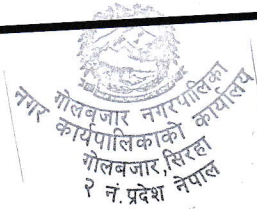 गोलबजार नगरपालिका
नगर कार्यपालिकाको कार्यालय
गोलबजार,सिरहा
२ नं. प्रदेश नेपाल